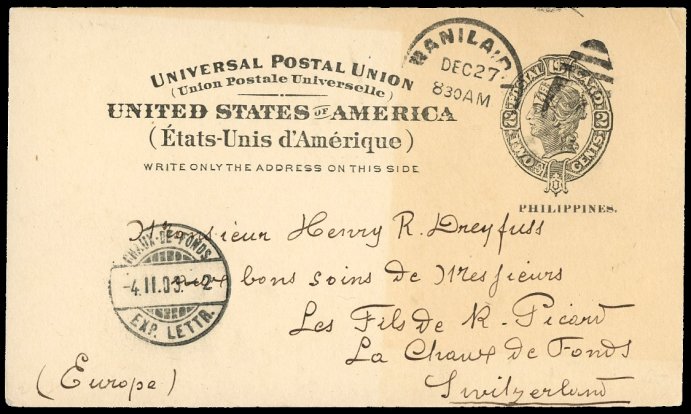 UNIVERSAL POSTAL UNION
(Union Postale Universelle)
UNITED STATES OF AMERICA
(États-Unis d'Amérique)
WRITE ONLY THE ADDRESS ON THIS SIDE
MANILA, P.
DEC 27
830AM
POSTAL CARD
TWO CENTS
PHILIPPINES.
CHAUX-DE-FONDS
-4.II.03.-2
EXP. LETTR.
Monsieur Henry R. Dreyfuss
aux bons soins de Messieurs
Les Fils de R. Picard
La Chaux de Fonds
Switzerland
(Europe)